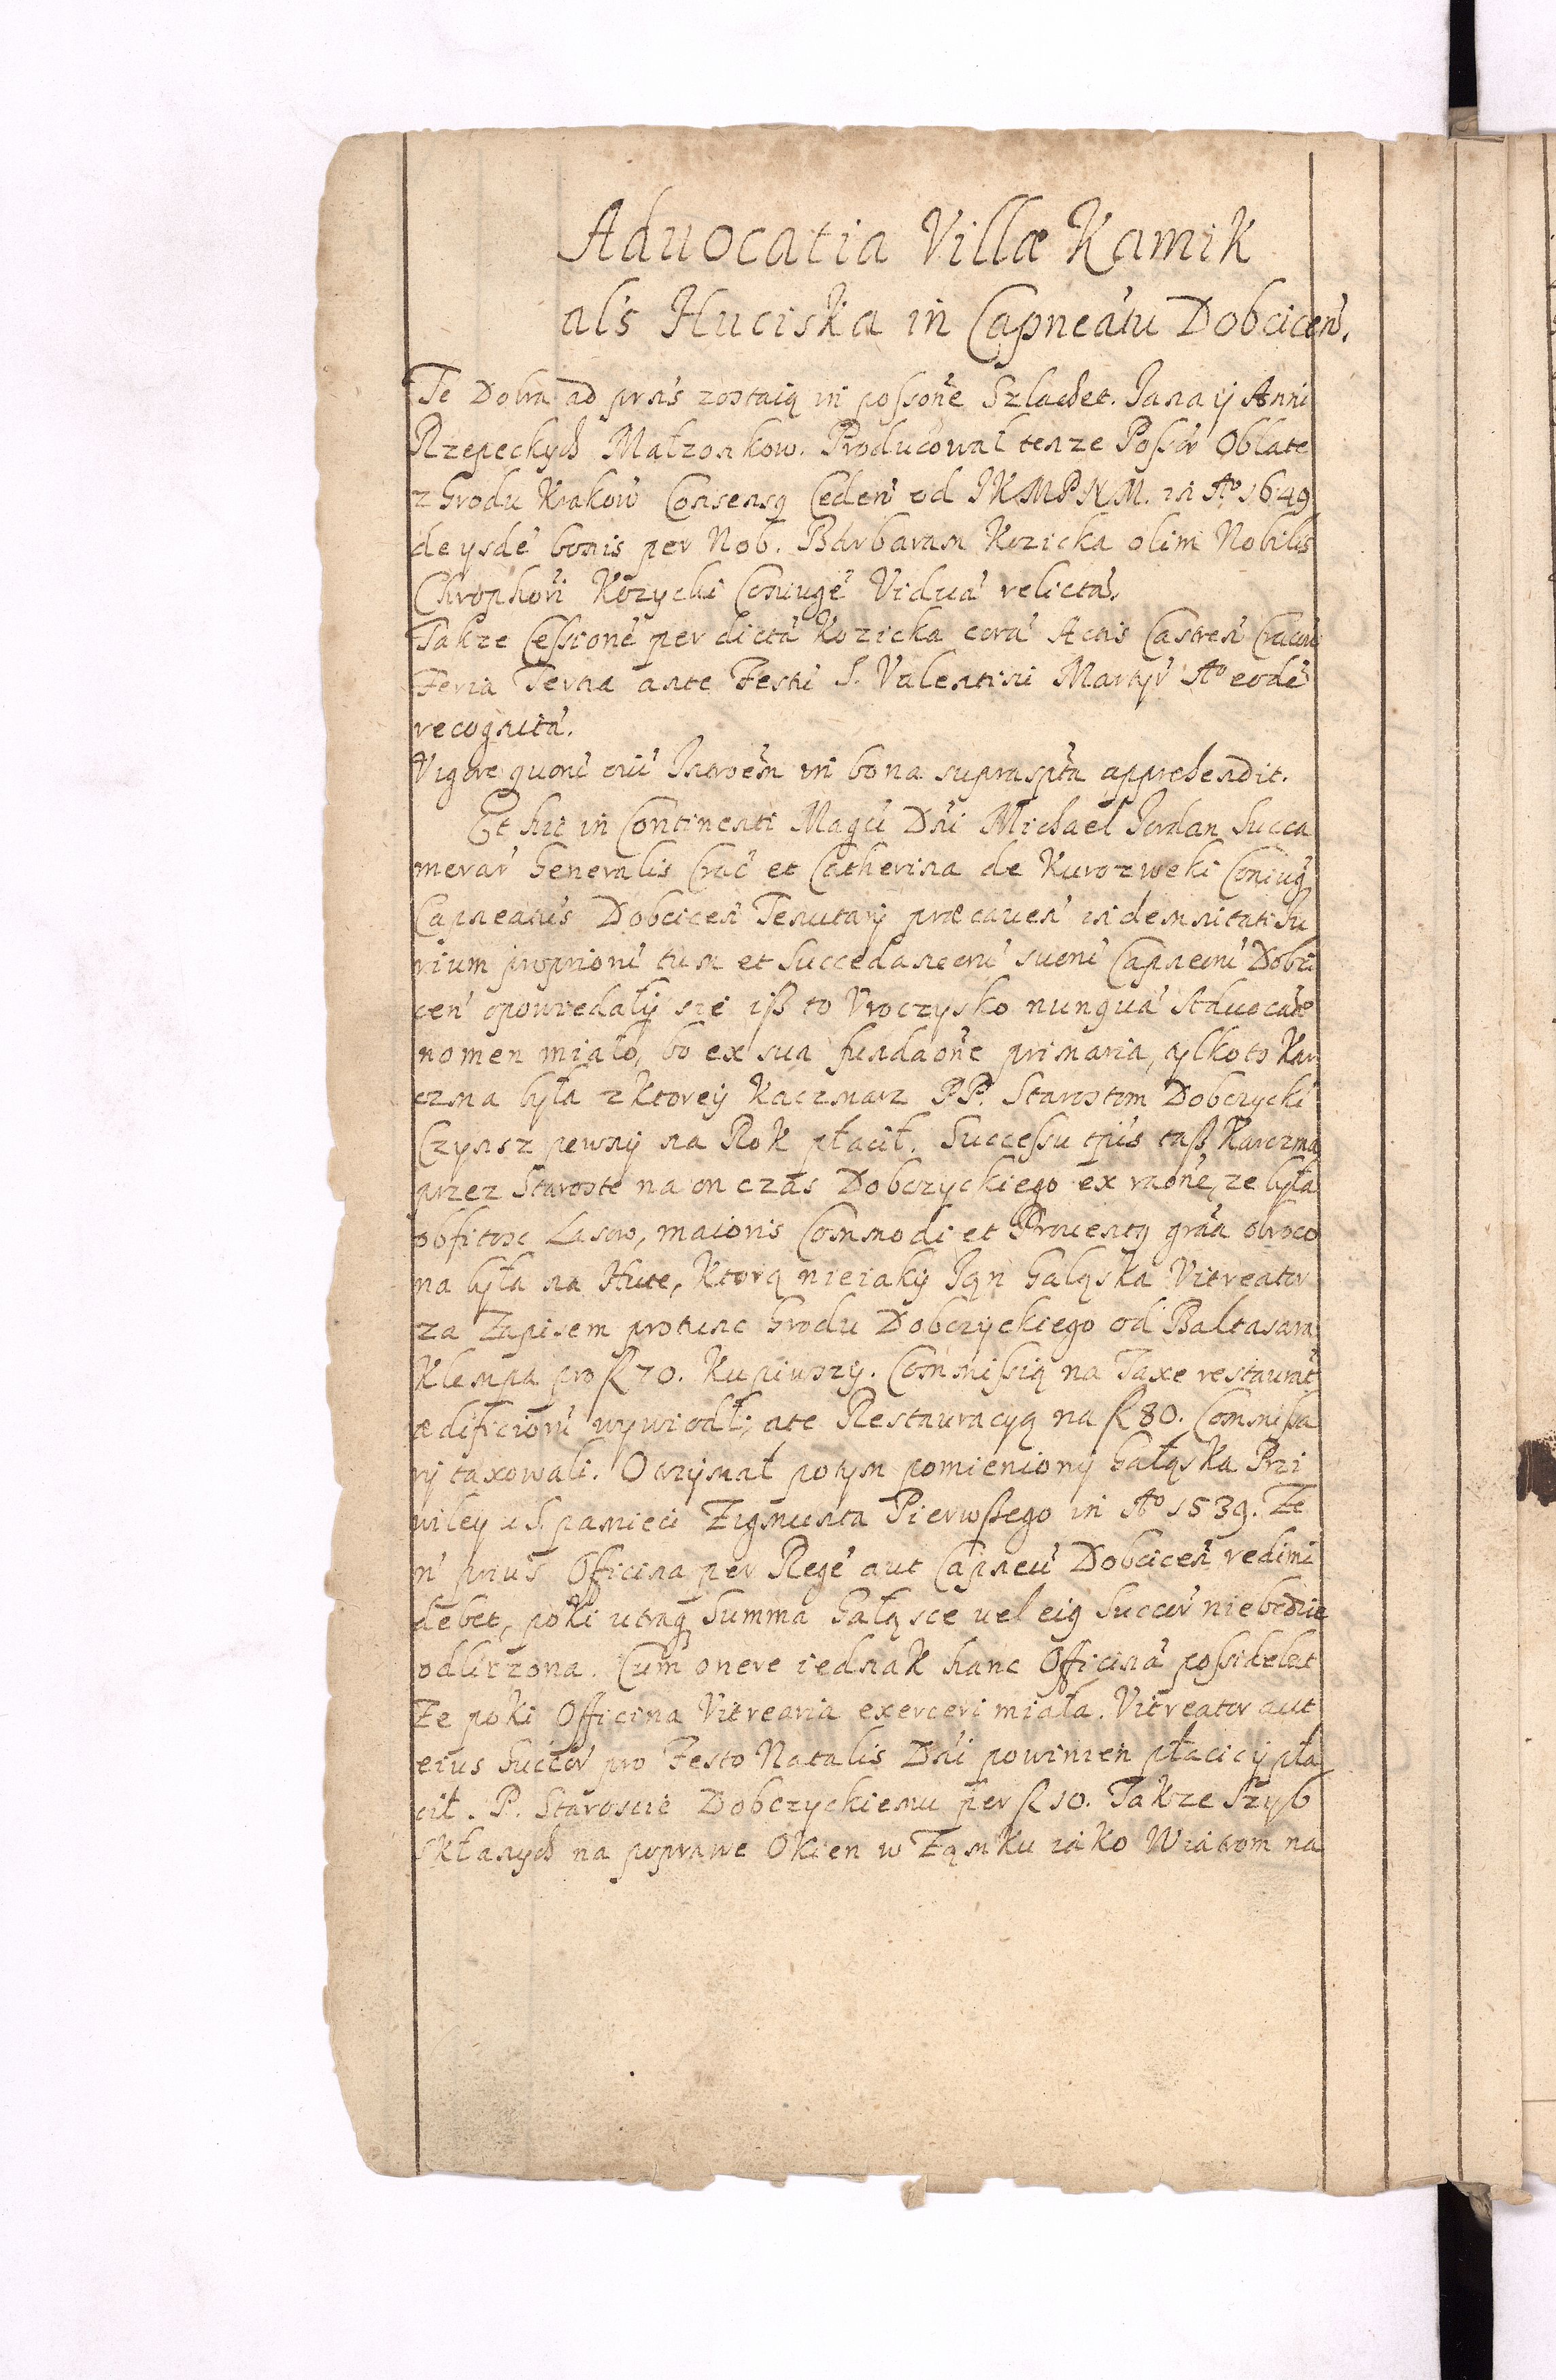 Advocatia Villæ Kamik
als Huciska in Capneatu Dobcicen.
Te Dobra ad prns zostaią in possone Szlachet. Jana ÿ Anni
Rzepeckych Małzonkow. Producował tenze Possor Oblate
z Grodu Krakow Consensq Ceden od JKMPNM. in Ao 1649
de ysde bonis per Nob. Barbaram Kozicka olim Nobilis
Chrophori Kozycki Coniuge Vidua relicta.
Takze Cessione per dicta Kozicka cora Actis Castren Cracov
Feria Tertia ante Festu S. Valentini Martyr Ao eode
recognita.
Vigore quoru oiu Introen in bona supraspta apprehendit.
Et hic in Continenti Magci Dni Michael Jordan Succa
merar Generalis Crac et Catherina de Kurozweki Coniug
Capneatus Dobcicen Tenutary præcaven indemnitati Iu
rium proprioru tum et Succedaneoru suoru Capneoru Dobci
cen opowiedałÿ sie iß to Vroczysko nunqua Advocatie
nomen miało, bo ex sua fundaone primaria, tylko to Kar
czma była z ktoreÿ Kaczmarz PP. Starostom Dobczycki
Czynsz pewny na Rok płacił. Successu tpis taß Karczma
przez Staroste na on czas Dobczyckiego ex raone, ze była
obfitosc Lasow, maioris Commodi et Proventq graa obroco
na była na Hute, Ktorą nieiaky Jan Gałąska Vitreator
za Zapisem protunc Grodu Dobczyckiego od Baltasara
Klempa pro fl 70. Kupiwszy. Commissią na Taxe restaurat
ædificioru wywiodł; a te Restauracyą na fl 80. Commissa
rÿ taxowali. Otrzymał potym pomieniony Gałąska Pri
wileÿ u S. pamieci Zigmunta Pierwßego in Ao 1539. Ze
n prius Officina per Rege aut Capneu Dobcicen redimi
debet, poki utraq Summa Gałąsce vel eiq Succor niebedzie
odliczona. Cum onere iednak hanc Officina possidebat
Ze poki Officina Vitrearia exerceri miała. Vitreator aut
eius Succor pro Festo Natalis Dni powinien płacic ÿ pła
cił. P. Staroscie Dobczyckiemu per fl 10. Takze Szyb
skłanych na poprawe Okien w Ząmku iako Wiatrom na